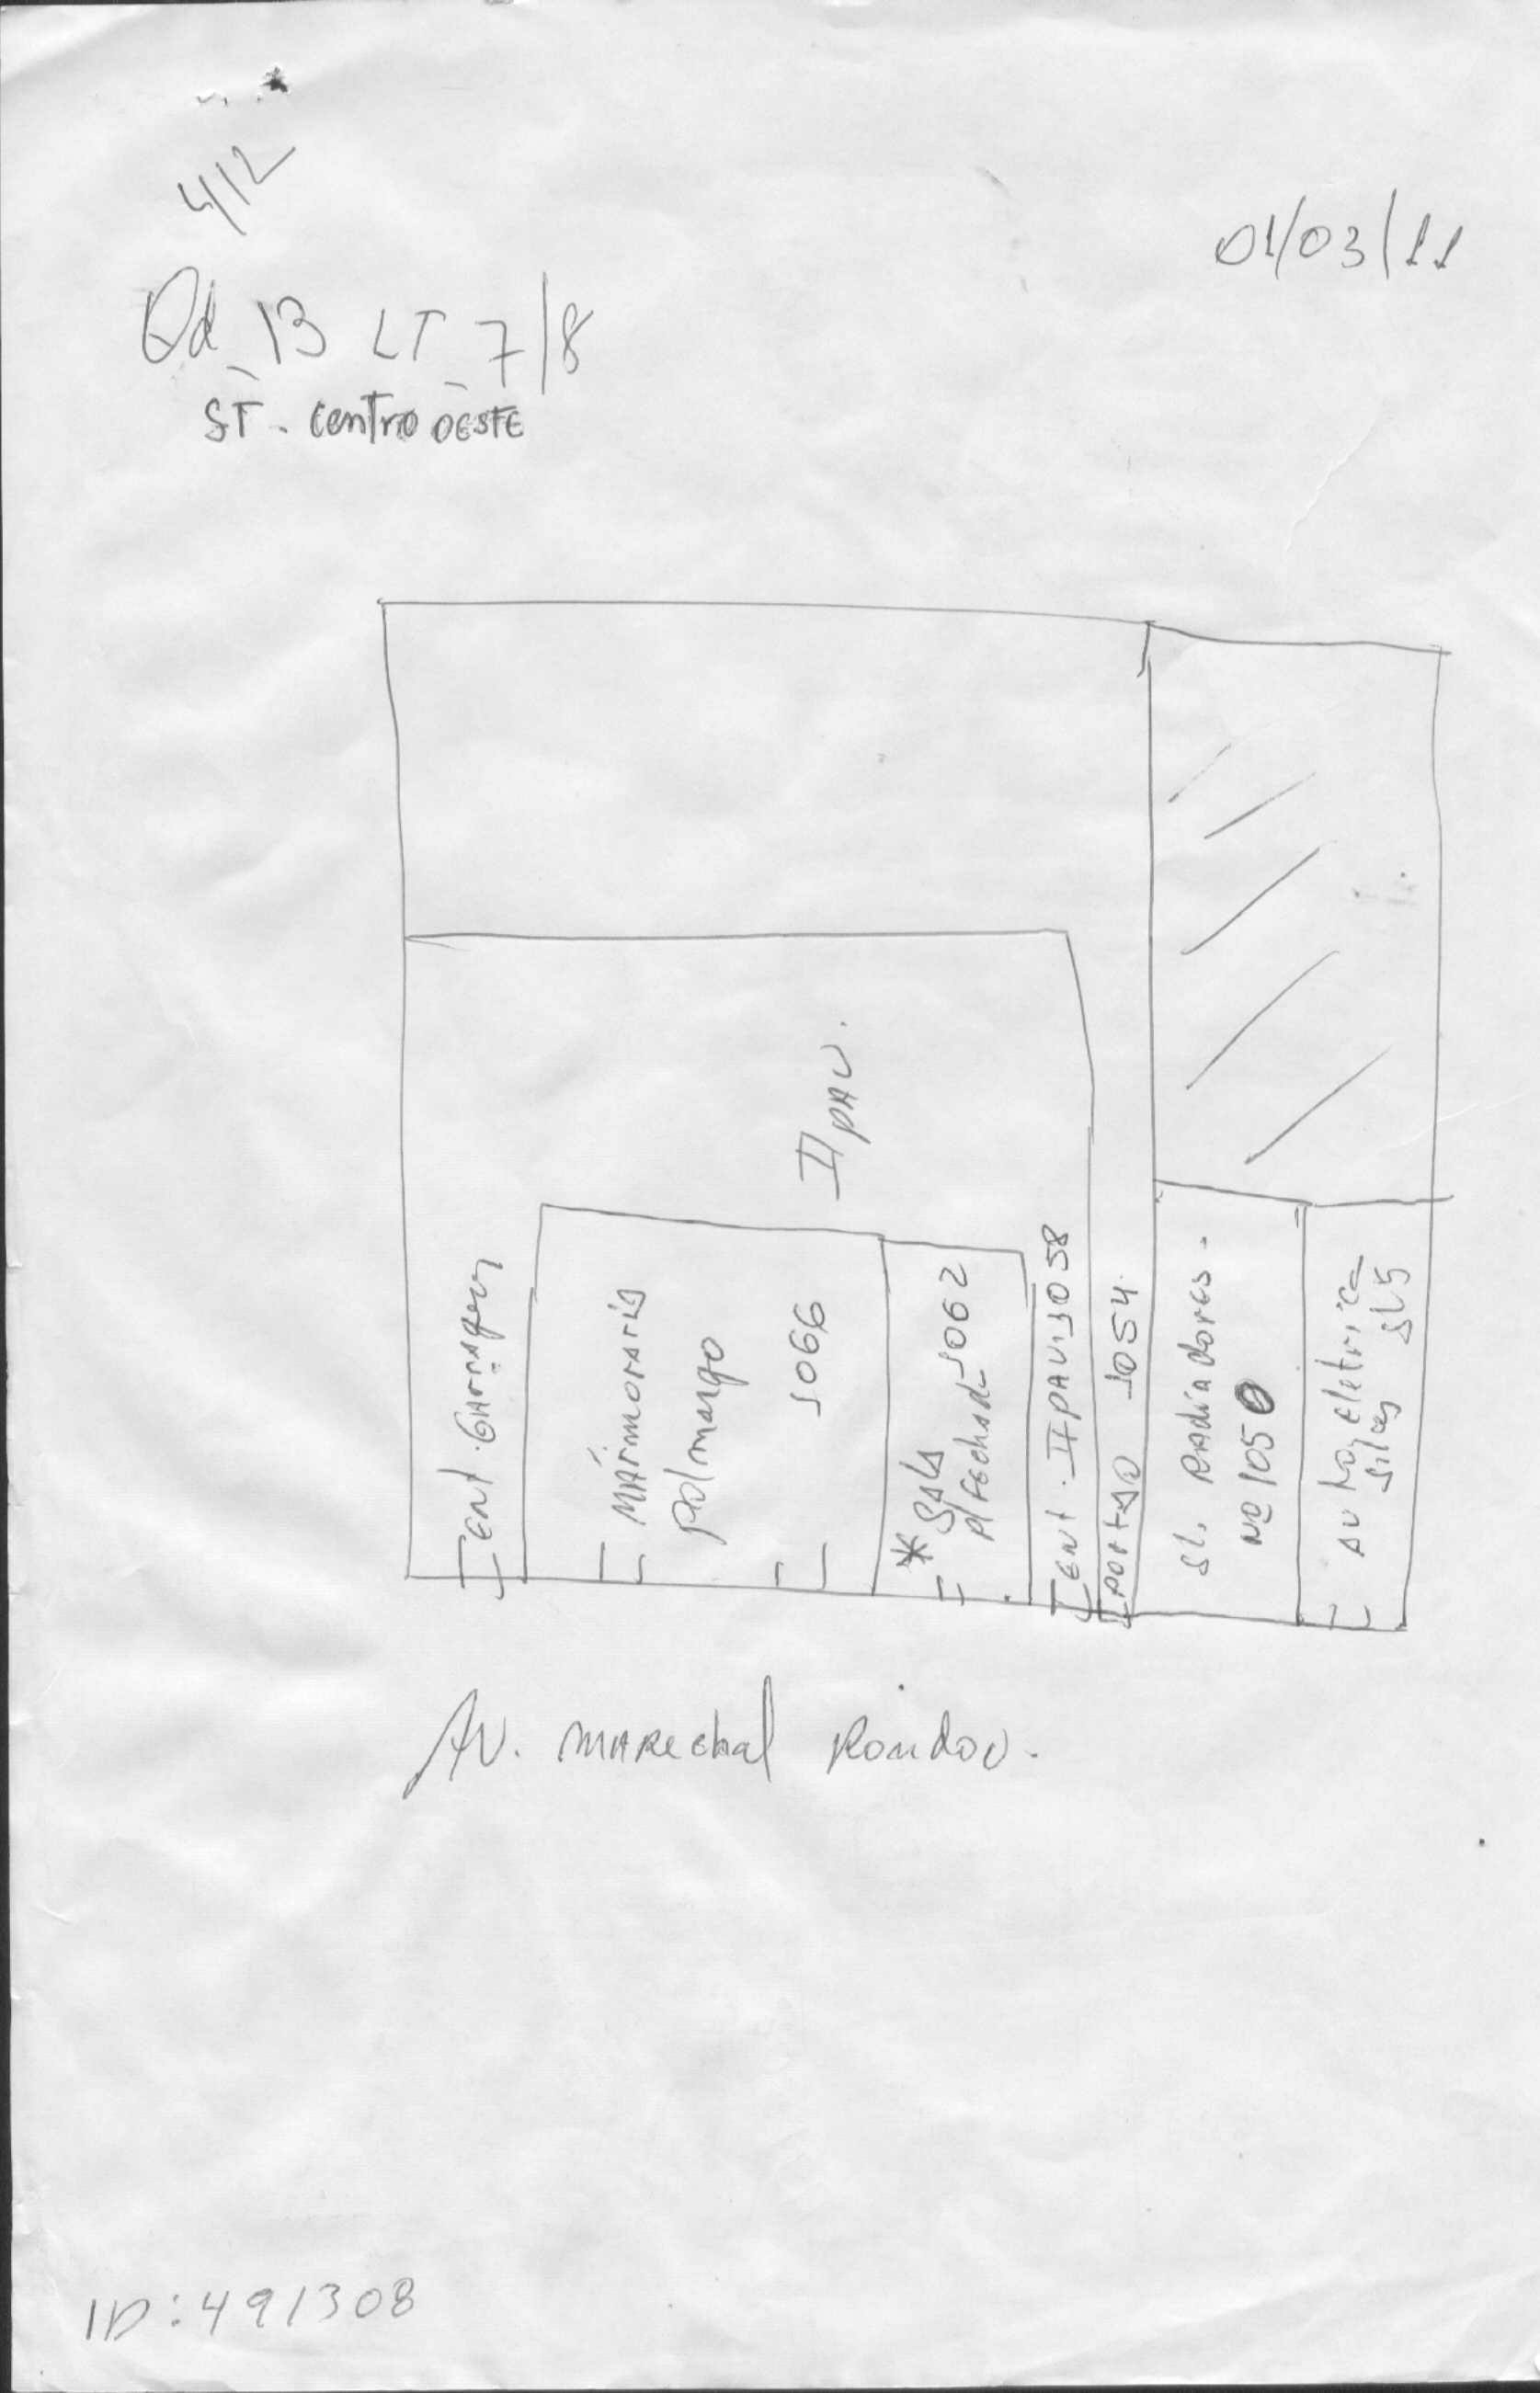 4/2
01/03/11
Qd_13 LT_7/8
ST. Centro OESTE
II PAV.
ent. GArragem
MArmoraria
Palmargo
1066
* SALA
p/ Fechad 1062
ent. II PAV. 1058
portão 1054.
SL. RAdiadores.
Nº 1050
AUto eletrica
SL5
Av. MARechal Rondon.
ID: 491308